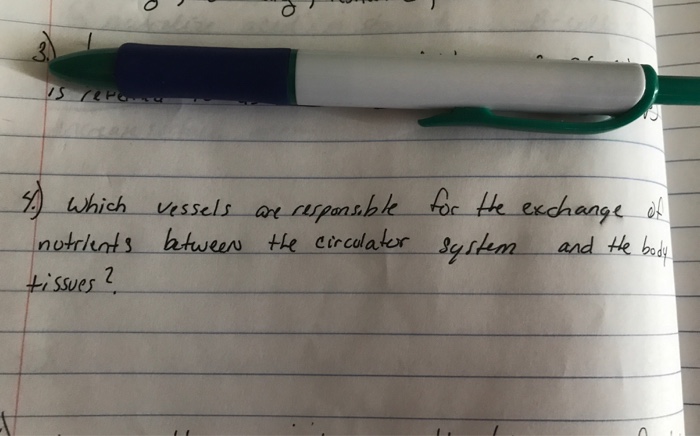 3.)
is
4.) Which vessels are responsible for the exchange of
nutrients between the circulator system and the body
tissues?